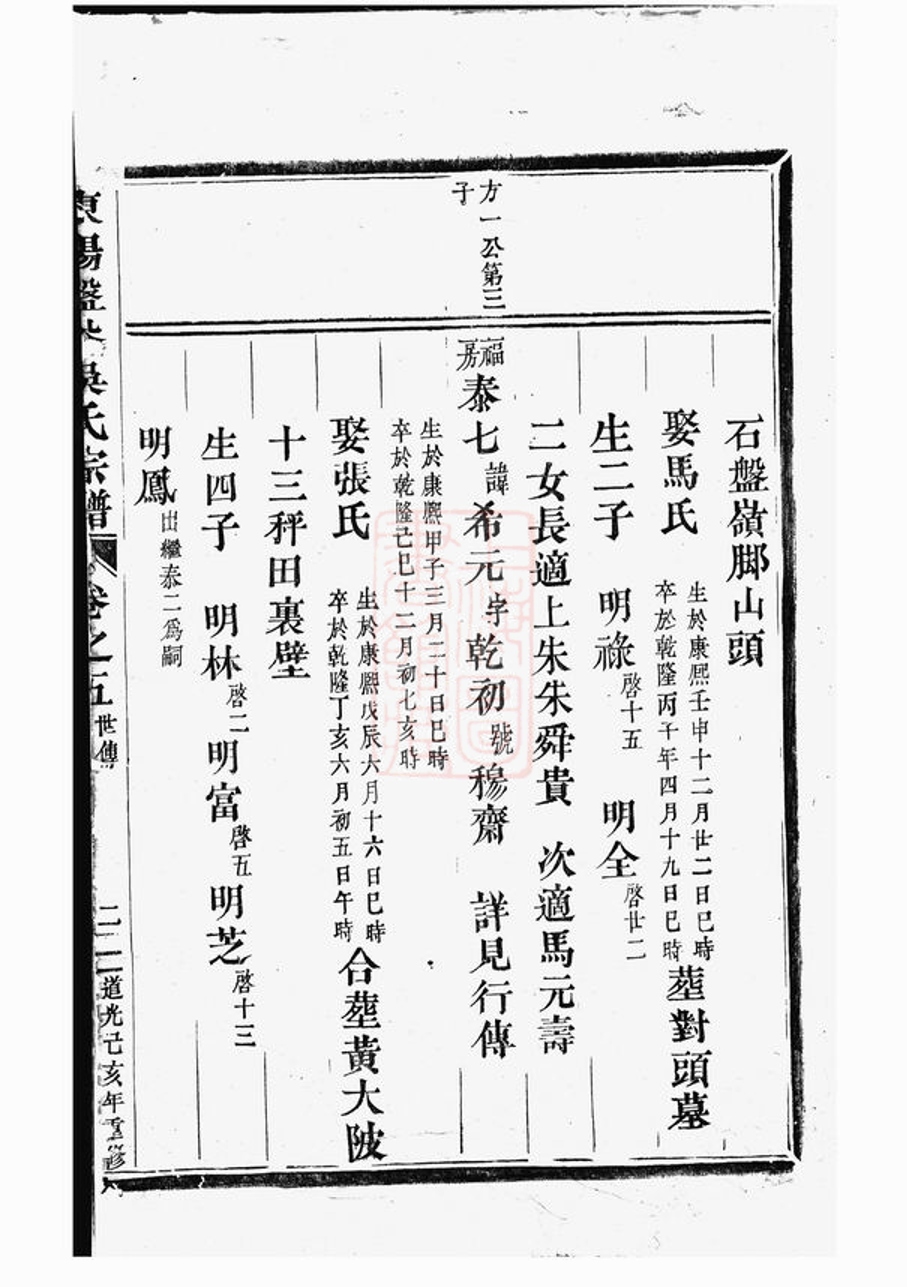 方一公第三
子
石盤嶺脚山頭
娶馬氏
生於康熙壬申十二月廿二日巳時
卒於乾隆丙午年四月十九日巳時
塟對頭墓
生二子 明祿啓十五 明全啓廿二
二女長適上朱朱舜貴 次適馬元壽
福
房
泰七諱希元字乾初號穆齋 詳見行傳
生於康熙甲子三月二十日巳時
卒於乾隆己巳十二月初七亥時
娶張氏
生於康熙戊辰六月十六日巳時
卒於乾隆丁亥六月初五日午時
合塟黃大陂
十三秤田裏壁
生四子 明林啓二明富啓五明芝啓十三
明鳳出繼泰二爲嗣
東陽盤 吳氏宗譜 卷之五 世傳 二二 道光己亥年重修